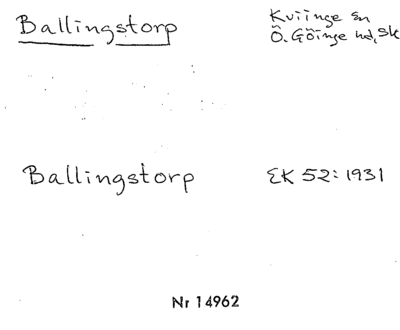 Ballingstorp
Kviinge sn
Ö. Göinge hd, Sk
Ballingstorp
EK 52: 1931
Nr 14962